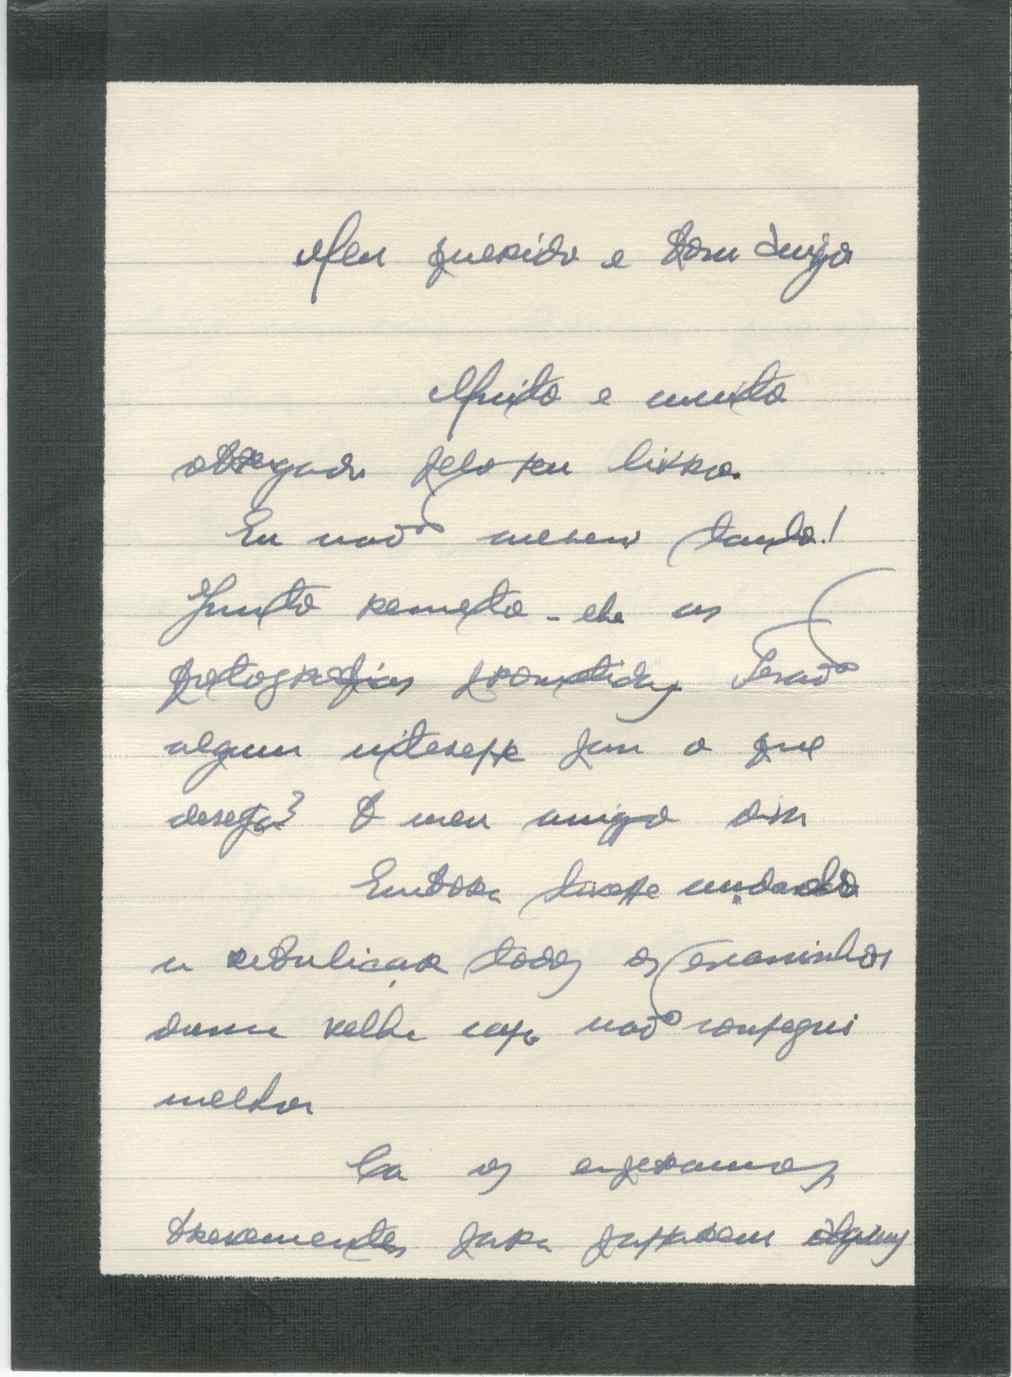 Meu querido e bom Amigo
Muito e muito
obrigado pelo seu livro.
Eu não mereci tanto!
Junto remeto-lhe as
fotografias prometidas Terão
algum interesse para o que
deseja? O meu amigo dirá
Embora tivesse andado
a rebuliçar todos os escaninhos
duma velha casa não consegui
melhor
Cá os esperamos
brevemente para passarem alguns